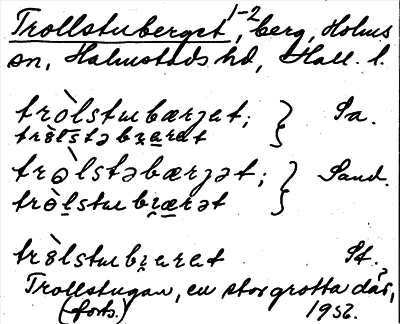 Trollstuberget 1-2, berg, Holms
sn, Halmstads hd, Hall. l.
tròlstubærjət; } Sa.
tròlstəbærət
tròlstəbærjət; } Sand.
tròlstubærət
tròlstubærət St.
Trollstugan, en stor grotta där,
(forts.) 1952.